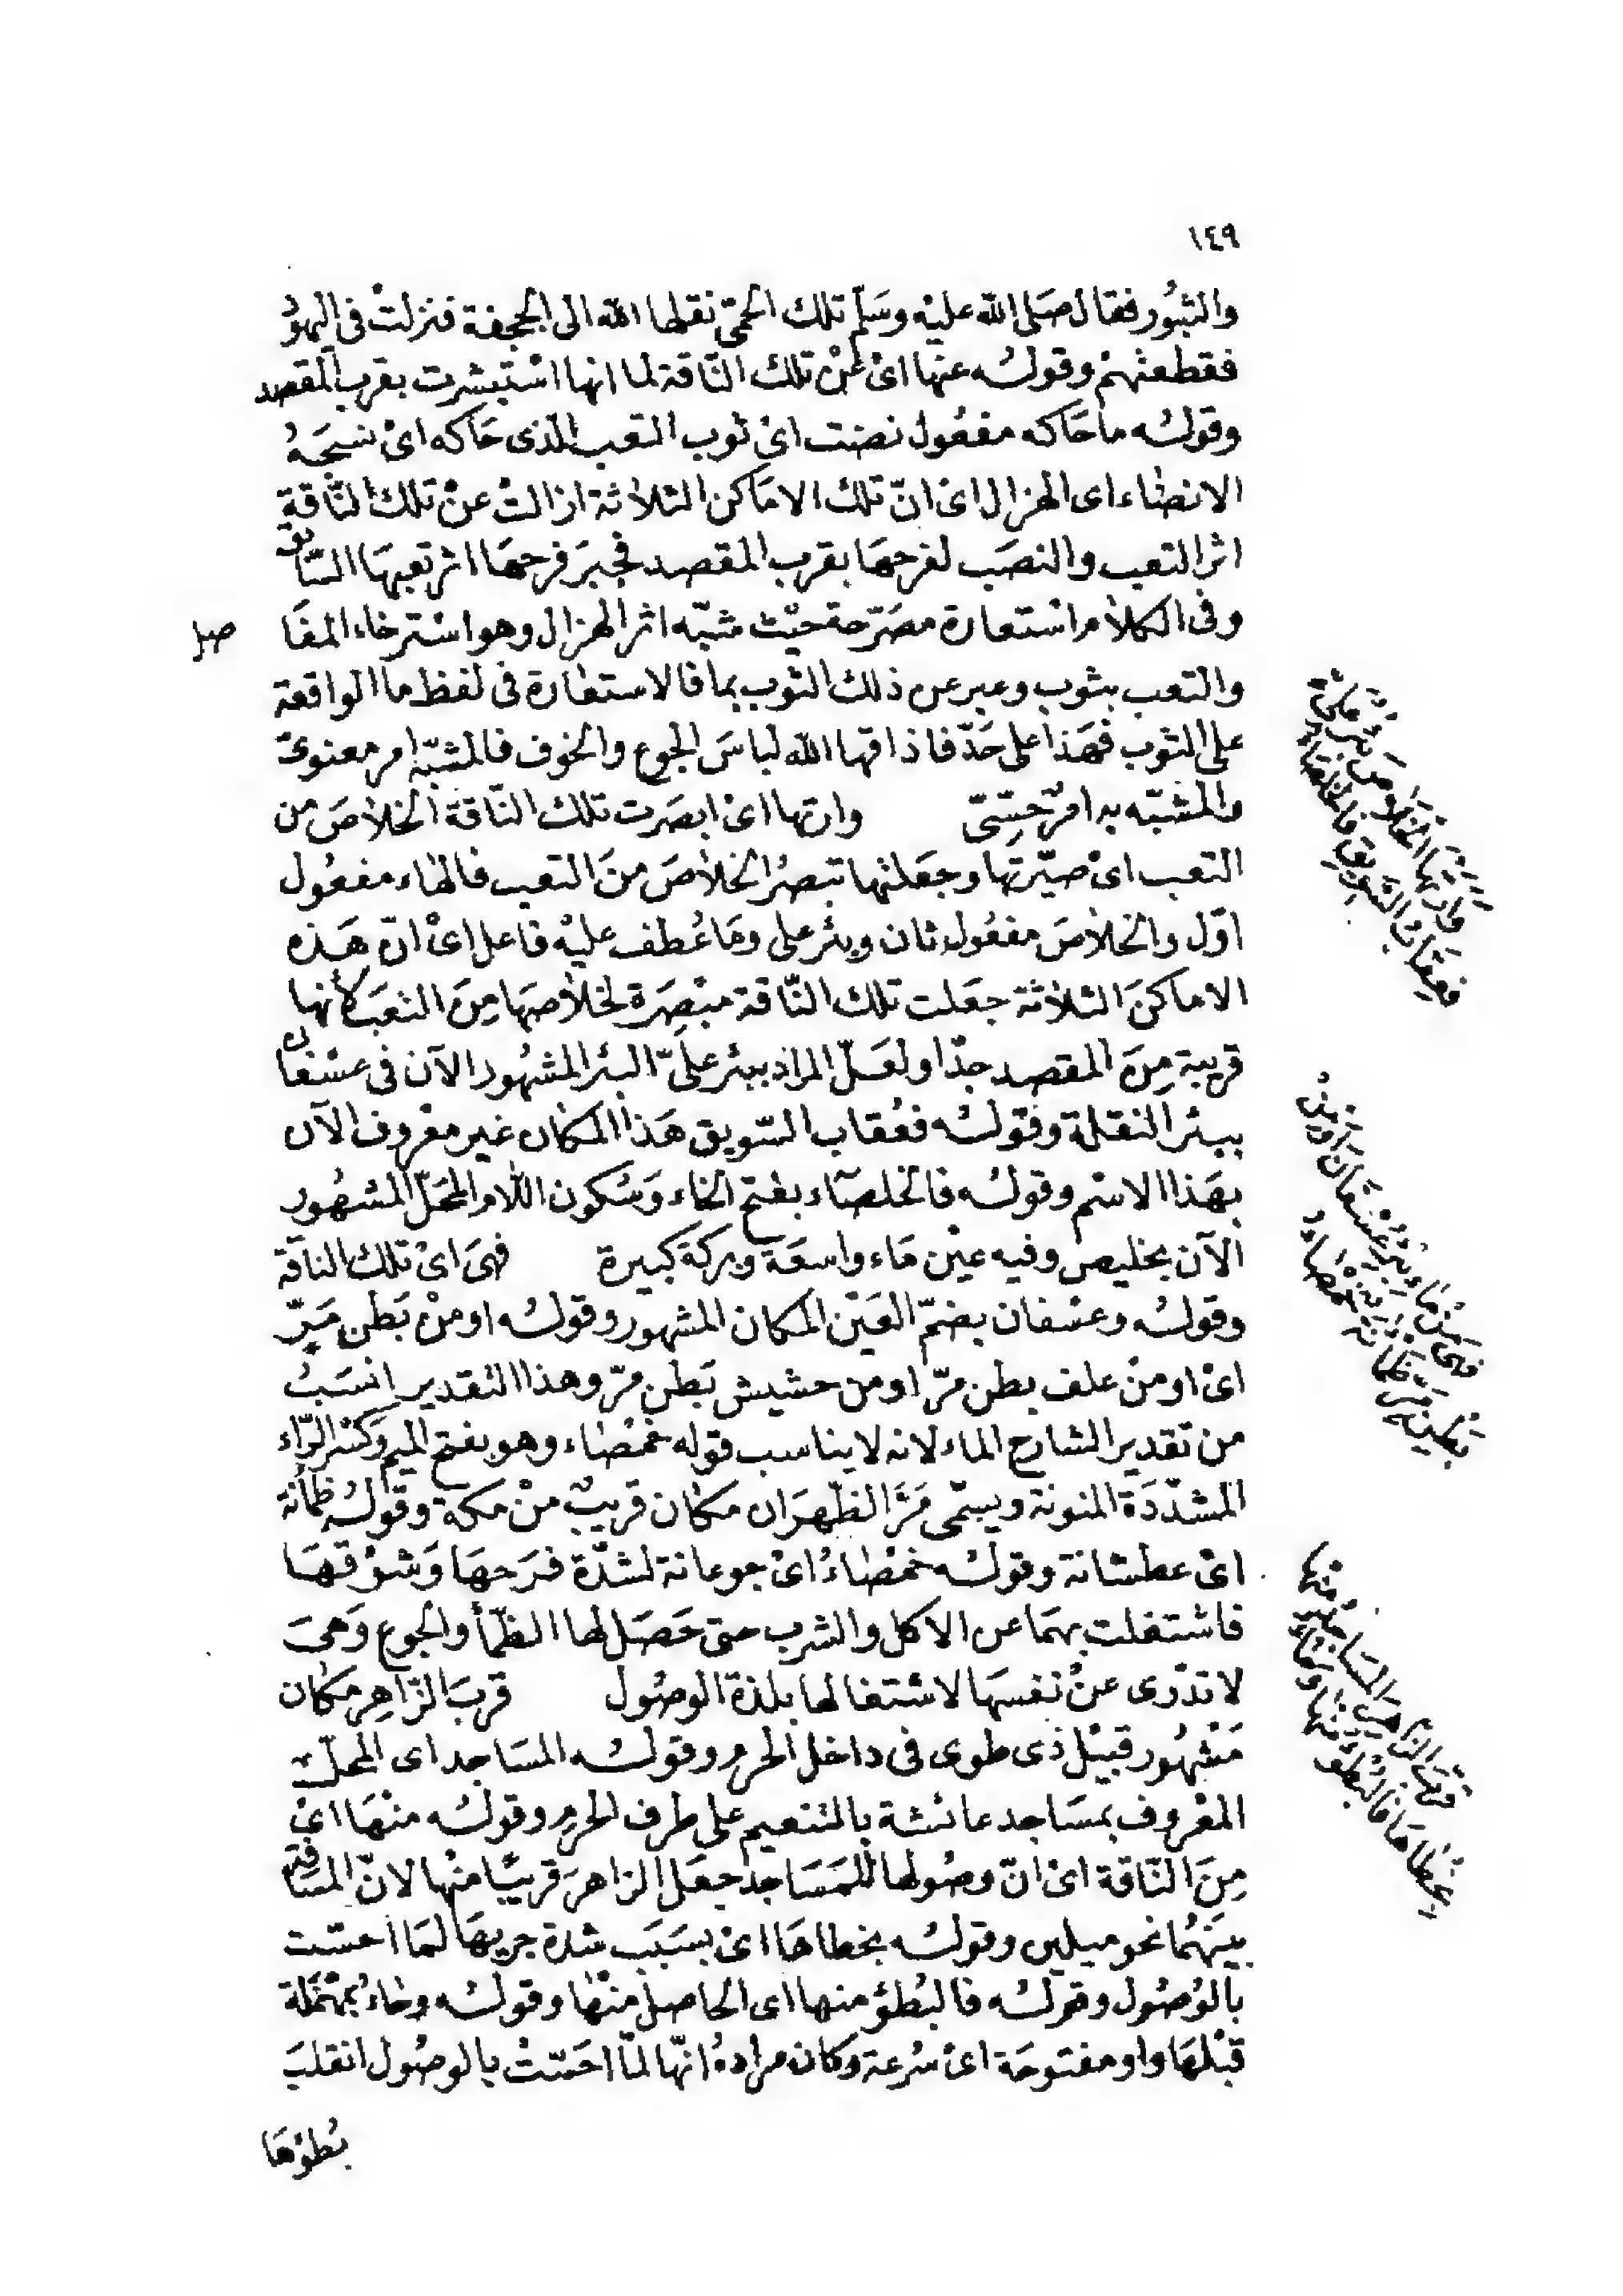 ١٤٩
والثبور فقال صَلى الله عليْه وسَلم تلك الحمّى نقلها الله الى الجحفة فنزلتْ فى اليهود
فقطعتهمْ وقولُه عنها اىْ عنْ تلك النّاقة لما انها اسْتبشرت بقرب المقصد
وقولُه ما حَاكه مفعُول نضت اىْ ثوب التعب الذى حَاكه اىْ نسجَهُ
الانضاء اى الهزال اىْ انّ تلك الامَاكن الثلاثة ازالتْ عنْ تلك النّاقةِ
اثر التعب والنصَب لفرحهَا بقرب المقصد فجبرَ فرحهَا اثر تعبهَا السّابق
وفى الكلام اسْتعارة مصَرّحة حيْث شبّه اثر الهزال وهو اسْترخاء المفَاصل
والتعب بثوب وعبر عن ذلك الثوب بما فالاستعارة فى لفظ ما الواقعة
على الثوب فهَذا على حَدّ فاذاقها الله لباسَ الجوع والخوف فالمشبّه امر معنوىّ
والمشبّه به امرٌ حِسّىّ وارتها اىْ ابصَرت تلك النّاقة الخلاصَ من
التعب اىْ صيّرتها وجعَلتها تبصُر الخلاصَ منَ التعب فالهاء مفعُول
اوّل والخلاصَ مفعُول ثان وبئر على ومَا عُطف عليْه فاعل اىْ انّ هَذه
الاماكنَ الثلاثة جعَلت تلك النّاقة مبْصِرَة لخلاصهَا مِنَ التعَب كأنها
قريبة مِنَ المقصد جدّا ولعَلّ المراد ببئر علىّ البئر المشهُور الآن فى عسْفان
ببئر التفلة وقولُه فعُقاب السّويق هَذا المكان غير معْروف الآن
بهَذا الاسْم وقولُه فالخلصَآء بفتح الخاء وَسُكون اللام المحَلّ المشهُور
الآن بخليص وفيه عيْن مَاء واسعَة وبركة كبيرة فهىَ اىْ تلك الناقة
وقولُه وعسْفان بضمّ العَيْن المكان المشهور وقولُه اومنْ بَطْن مَرٍّ
اىْ اومنْ علف بطن مرّ اومن حشيش بَطن مرّ وهذا التقدير انسَبُ
من تقدير الشارح الماء لانه لا يناسب قوله خمْصَاء وهو بفتح الميم وَكسْر الرّاء
المشدّدَة المنونة ويسمّى مَرَّ الظّهرَان مكان قريبٌ منْ مكة وقولُه ظمأنة
اىْ عطشانة وقولُه خمْصَاءُ اىْ جوعانة لشدّة فرَحهَا وَشوْقهَا
فاشتغلت بهمَا عن الاكل والشرب حتى حَصَل لها الظّمأ والجوع وَهىَ
لا تدْرى عنْ نفسهَا لاشتغالها بلذة الوصُول قربَ الزّاهِر مكان
مَشْهُور قبيْل ذى طوى فى داخل الحرم وقولُه المسَاجد اى المحلّ
المعْروف بمسَاجد عائشة بالتنعيم على طرف الحرم وقولُه منْهَا اىْ
مِنَ النّاقة اىْ انّ وصُولها للمَسَاجد جعَل الزاهرَ قريبًا منْها لانّ المسَافة
بيَنهُمَا نحو ميلين وقولُه بخطاهَا اىْ بسَبَب شدة جريهَا لمَا احسّت
بالوُصُول وقولُه فالبُطؤ منها اى الحاصل منْهَا وقولُه وحاءُ بمهْمَلة
قبْلهَا واو مفتوحَة اىْ سُرعة وكان مرادهُ انّها لمّا احَسّتْ بالوصُول انقلبَ
بُطؤهَا
وَارَتْهَا الخَلَاصَ بِئْرُ عَلىٍّ
فعِقَابُ السَّوِيقِ فالخَلْصَاءُ
فهىَ مِنْ مَاءِ بِئْرِ عُسْفَانَ اوْ مِنْ
بَطْنِ مَرٍّ ظَمْآنَةٌ خَمْصَاءُ
قرَّبَ الزَّاهِرَ المَسَاجِدُ مِنْهَا
بخُطَاهَا فَالبُطْؤُ مِنْهَا وَحَاءُ